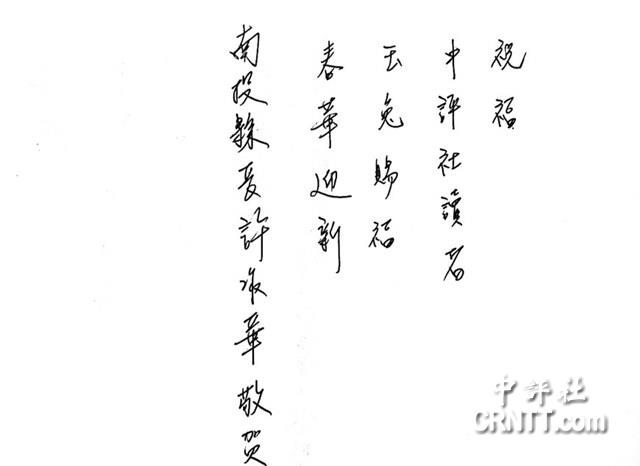 祝福
中評社讀者
玉兔賜福
春華迎新
南投縣長許淑華敬賀
中評社
CRNTT.com